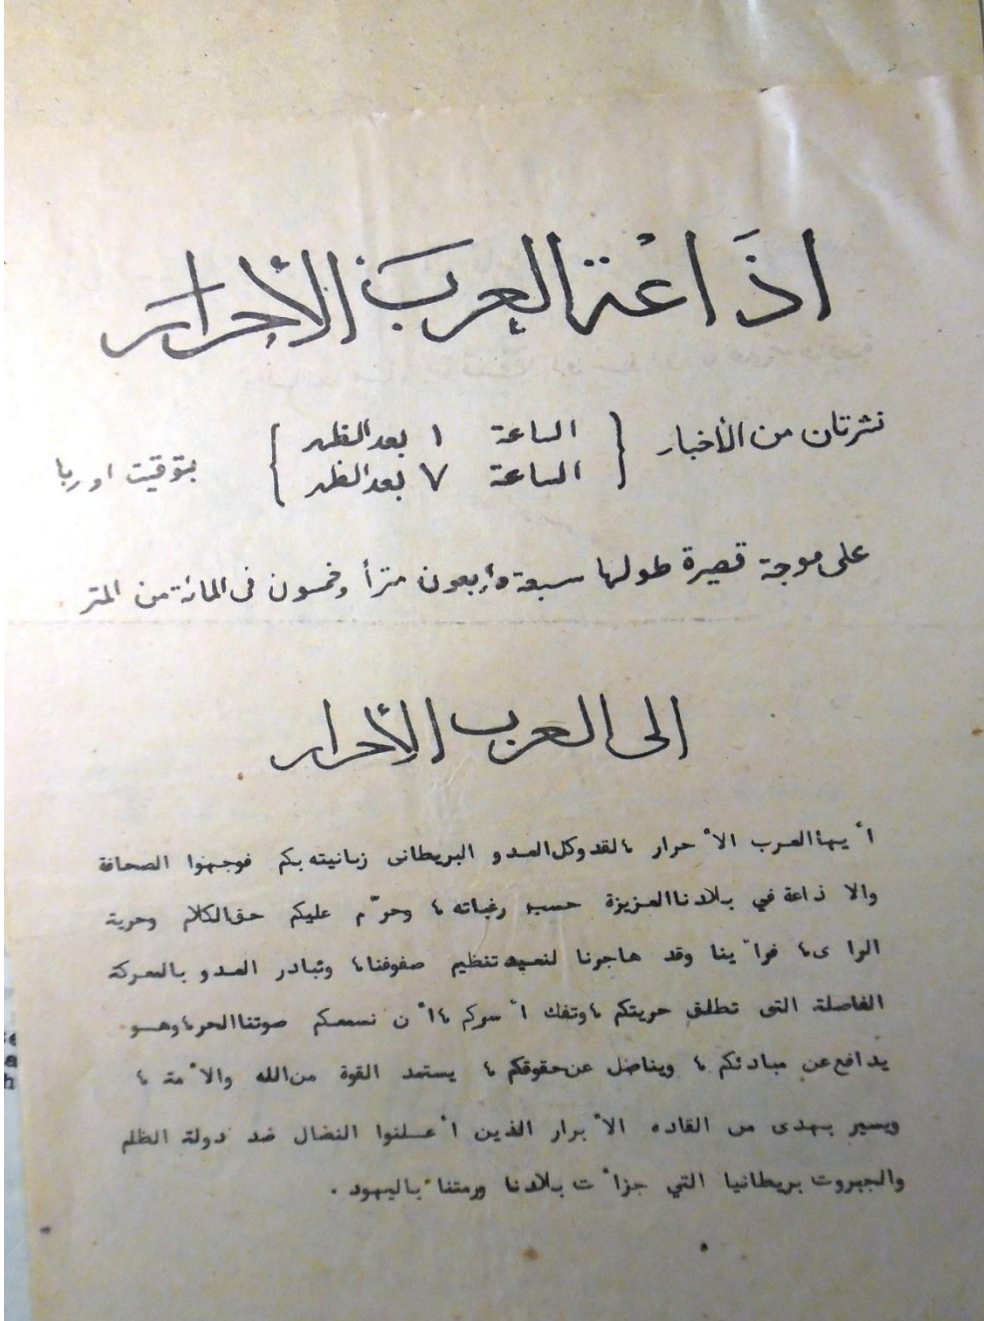 اذَاعْة العربَ الأحرار
نشرتان من الأخبار { الساعة ١ بعد الظهر } بتوقيت اوربا
{ الساعة ٧ بعد الظهر }
على موجة قصيرة طولها سبعة واربعون مترأ وخمسون فى المائة من المتر
الى العرب الأحرار
أيها العرب الأحرار ، لقد وكل العدو البريطانى زبانيته بكم فوجهوا الصحافة
والاذاعة في بلادنا العزيزة حسب رغباته ، وحرّم عليكم حق الكلام وحرية
الراى ، فرأينا وقد هاجرنا لنعيد تنظيم صفوفنا ، ونبادر العدو بالمعركة
الفاصلة التى تطلق حريتكم ، وتفك أسركم ، أن نسمعكم صوتنا الحر ، وهو
يدافع عن مبادئكم ، ويناضل عن حقوقكم ، يستمد القوة من الله والأمة ،
ويسير بهدى من القاده الأبرار الذين أعلنوا النضال ضد دولة الظلم
والجبروت بريطانيا التي جزأت بلادنا ورمتنا باليهود .